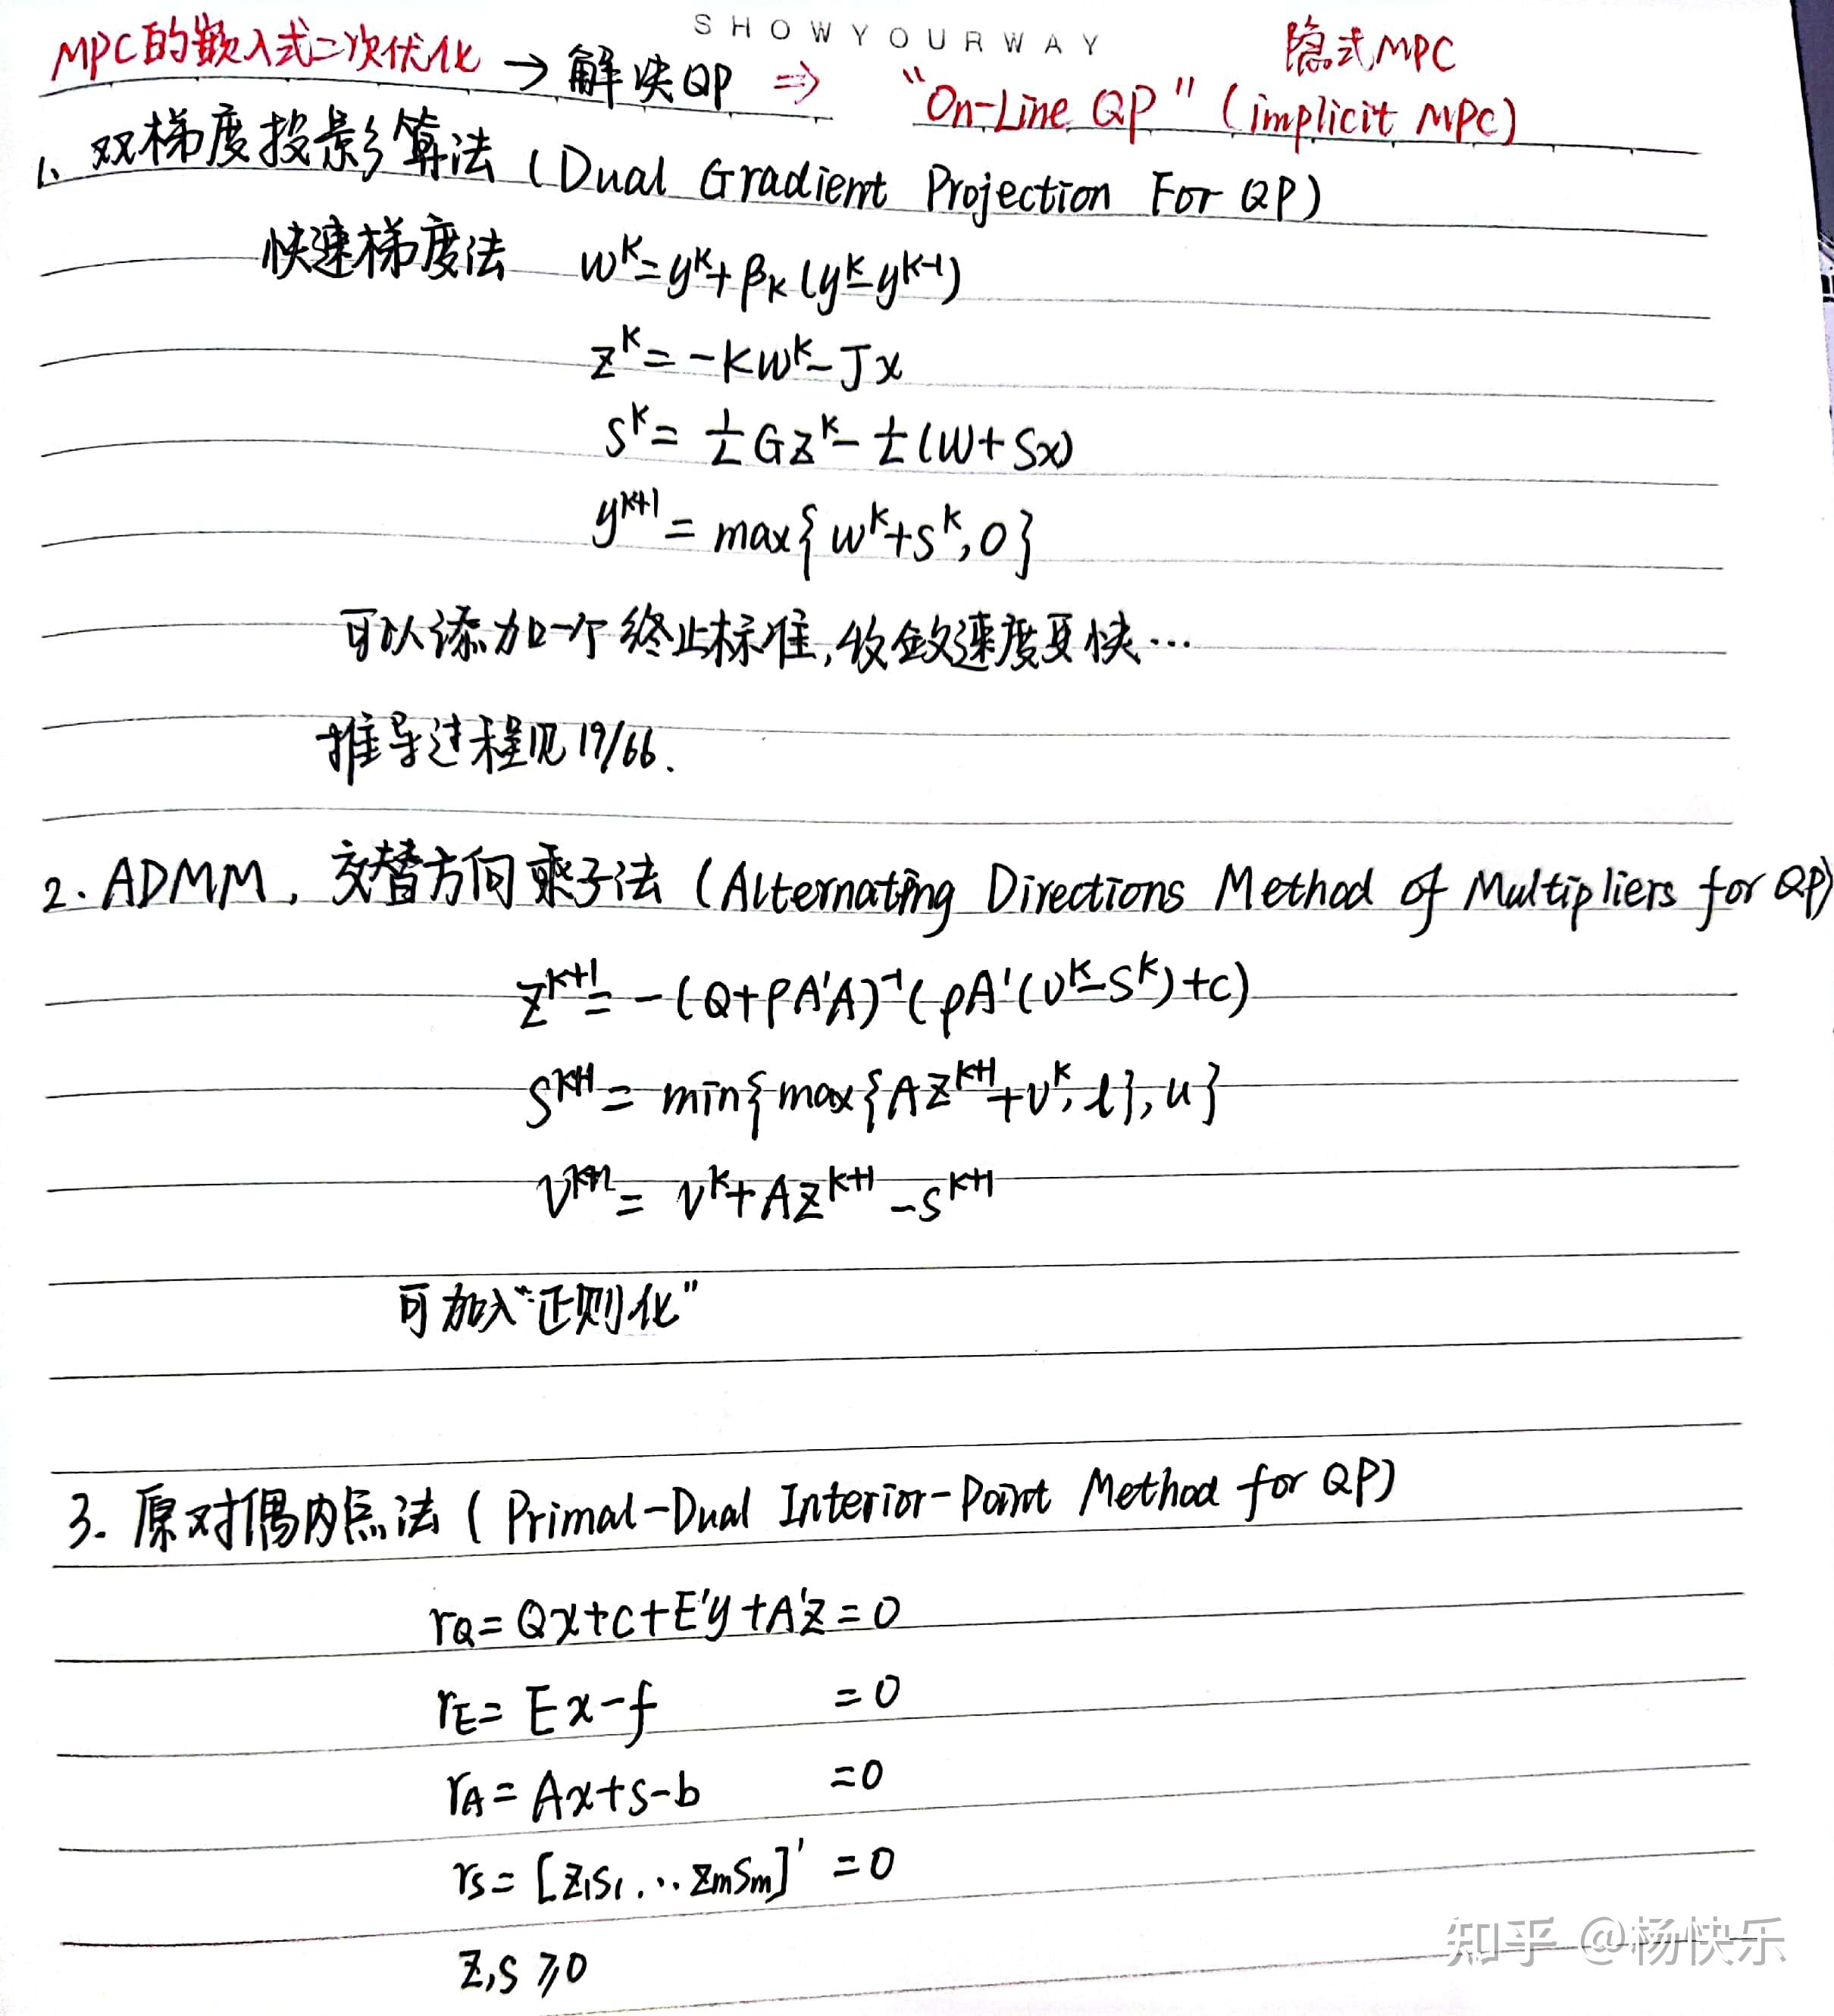 SHOWYOURWAY
MPC的嵌入式二次优化 → 解决QP ⇒ “On-Line QP” (implicit MPC)
隐式MPC
1、双梯度投影算法 (Dual Gradient Projection For QP)
快速梯度法 w^k = y^k + β_k (y^k - y^{k-1})
z^k = -Kw^k - Jx
s^k = 1/L Gz^k - 1/L (W + Sx)
y^{k+1} = max{w^k + s^k, 0}
可以添加一个终止标准,收敛速度更快…
推导过程见19/66.
2. ADMM, 交替方向乘子法 (Alternating Directions Method of Multipliers for QP)
z^{k+1} = -(Q + ρA'A)^{-1} (ρA'(v^k - s^k) + c)
s^{k+1} = min{max{Az^{k+1} + v^k, l}, u}
v^{k+1} = v^k + Az^{k+1} - s^{k+1}
可加入“正则化”
3. 原对偶内点法 (Primal-Dual Interior-Point Method for QP)
r_Q = Qx + c + E'y + A'z = 0
r_E = Ex - f = 0
r_A = Ax + s - b = 0
r_S = [z_1s_1 ... z_ms_m]' = 0
z, s ⩾ 0
知乎 @杨快乐